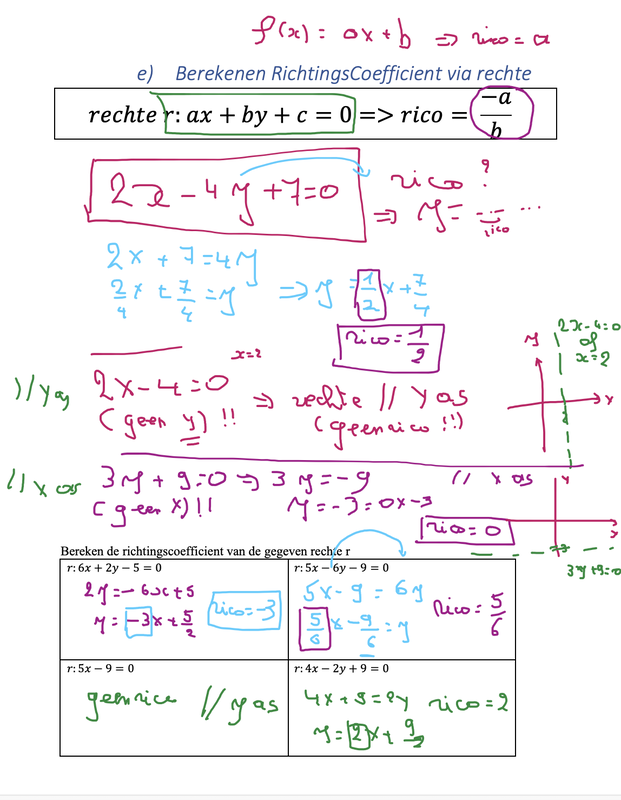 f(x) = ax + b => rico = a
e) Berekenen RichtingsCoefficient via rechte
rechte r: ax + by + c = 0 => rico = −a/b
2x − 4y + 7 = 0
rico ?
=> y = .../rico ...
2x + 7 = 4y
2/4 x + 7/4 = y => y = 1/2 x + 7/4
rico = 1/2
x = 2
// y as
2x − 4 = 0
(geen y) !!
=> rechte // y as
(geen rico !!)
2x − 4 = 0
of
x = 2
y
x
// x as
3y + 9 = 0 => 3y = −9
(geen x) !!
y = −3 = 0x − 3
// x as
rico = 0
y
x
−3
3y + 9 = 0
Bereken de richtingscoefficient van de gegeven rechte r
r: 6x + 2y − 5 = 0
2y = −6x + 5
y = −3x + 5/2
rico = −3
r: 5x − 6y − 9 = 0
5x − 9 = 6y
5/6 x − 9/6 = y
rico = 5/6
r: 5x − 9 = 0
geen rico // y as
r: 4x − 2y + 9 = 0
4x + 9 = 2y rico = 2
y = 2x + 9/2